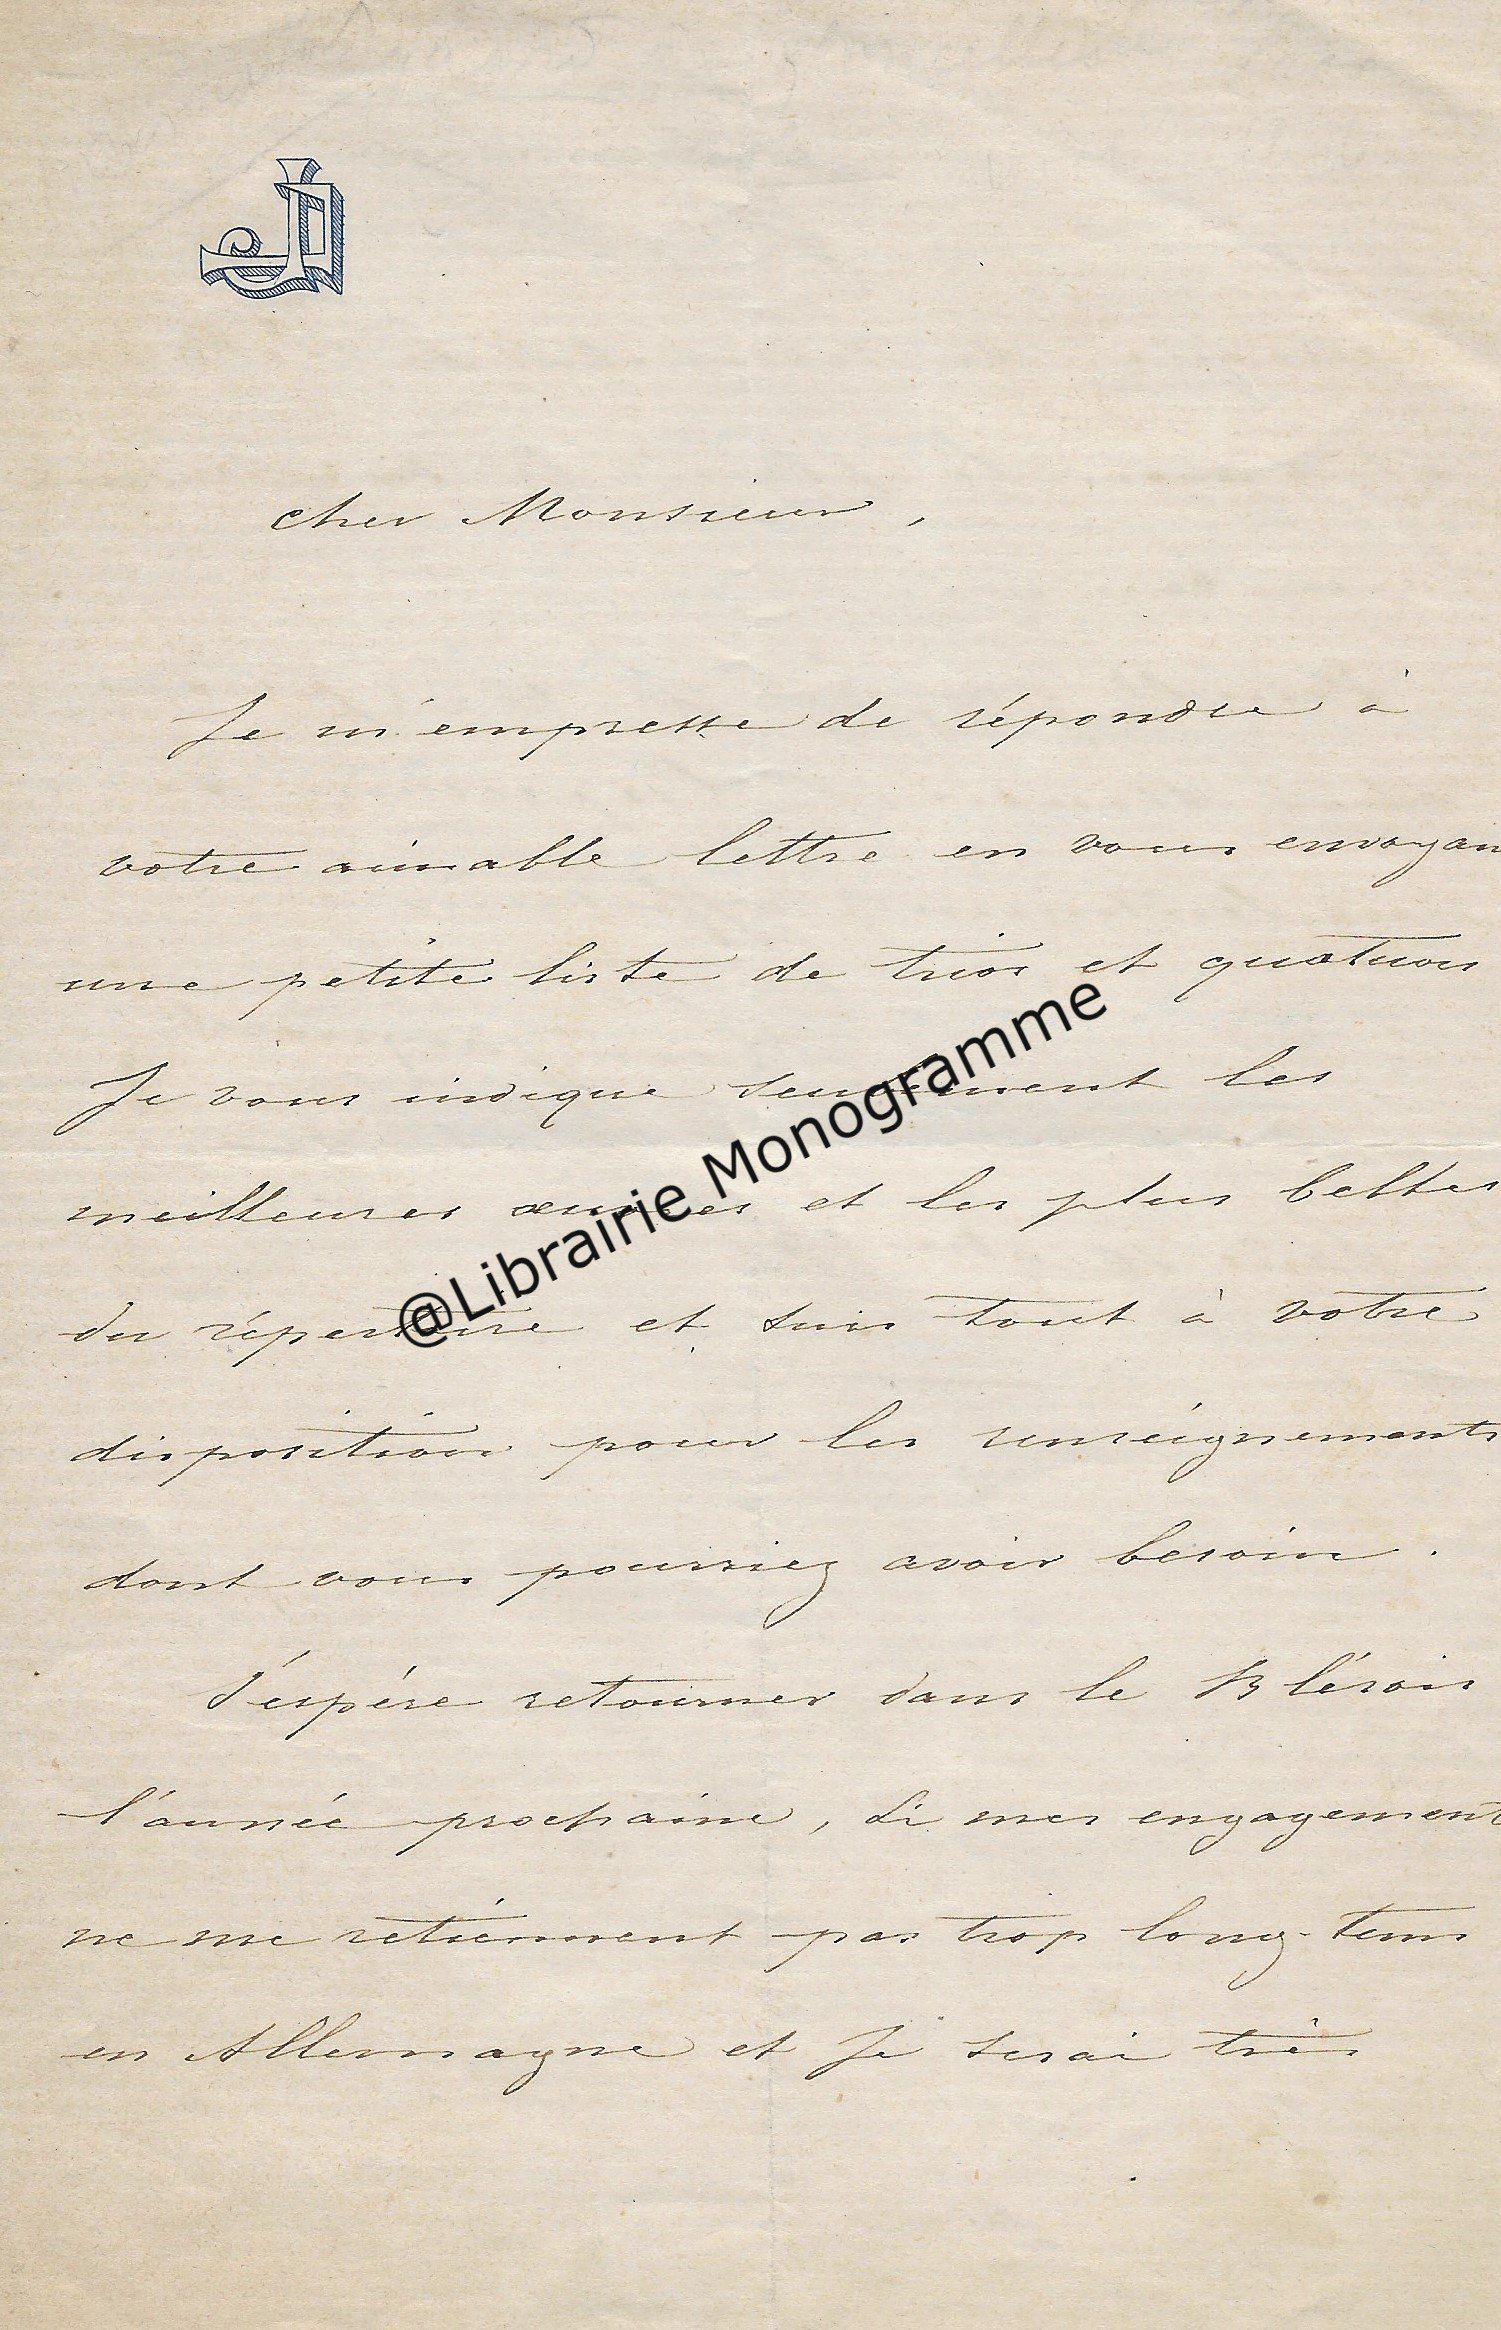 JD
cher Monsieur,
Je m'empresse de répondre à
votre aimable lettre en vous envoyan
une petite liste de trios et quatuors
Je vous indique seulement les
meilleures œuvres et les plus belles
du répertoire et suis tout à votre
disposition pour les renseignements
dont vous pourriez avoir besoin.
J'espére retourner dans le Blésois
l'année prochaine, si mes engagement
ne me retiennent pas trop long-tems
en Allemagne et Je serai très
@Librairie Monogramme